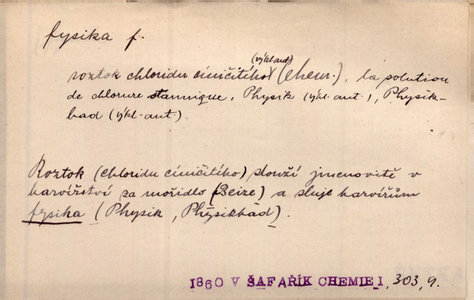 fysika f.
(výkl. aut.)
roztok chloridu cíničitého (chem.), la solution
de chlorure stannique, Physik (výkl. aut.), Physik-
bad (výkl. aut.).
Roztok (chloridu cíničitého) slouží jmenovitě v
barvířství za mořidlo (Beize) a sluje barvířům
fysika (Physik, Physikbad).
1860 V ŠAFAŘÍK CHEMIE I, 303, 9.